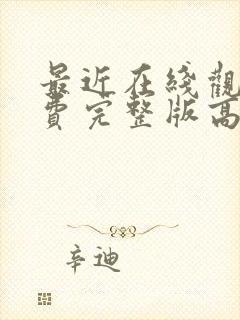 最近在线觀
费完整版高
辛迪